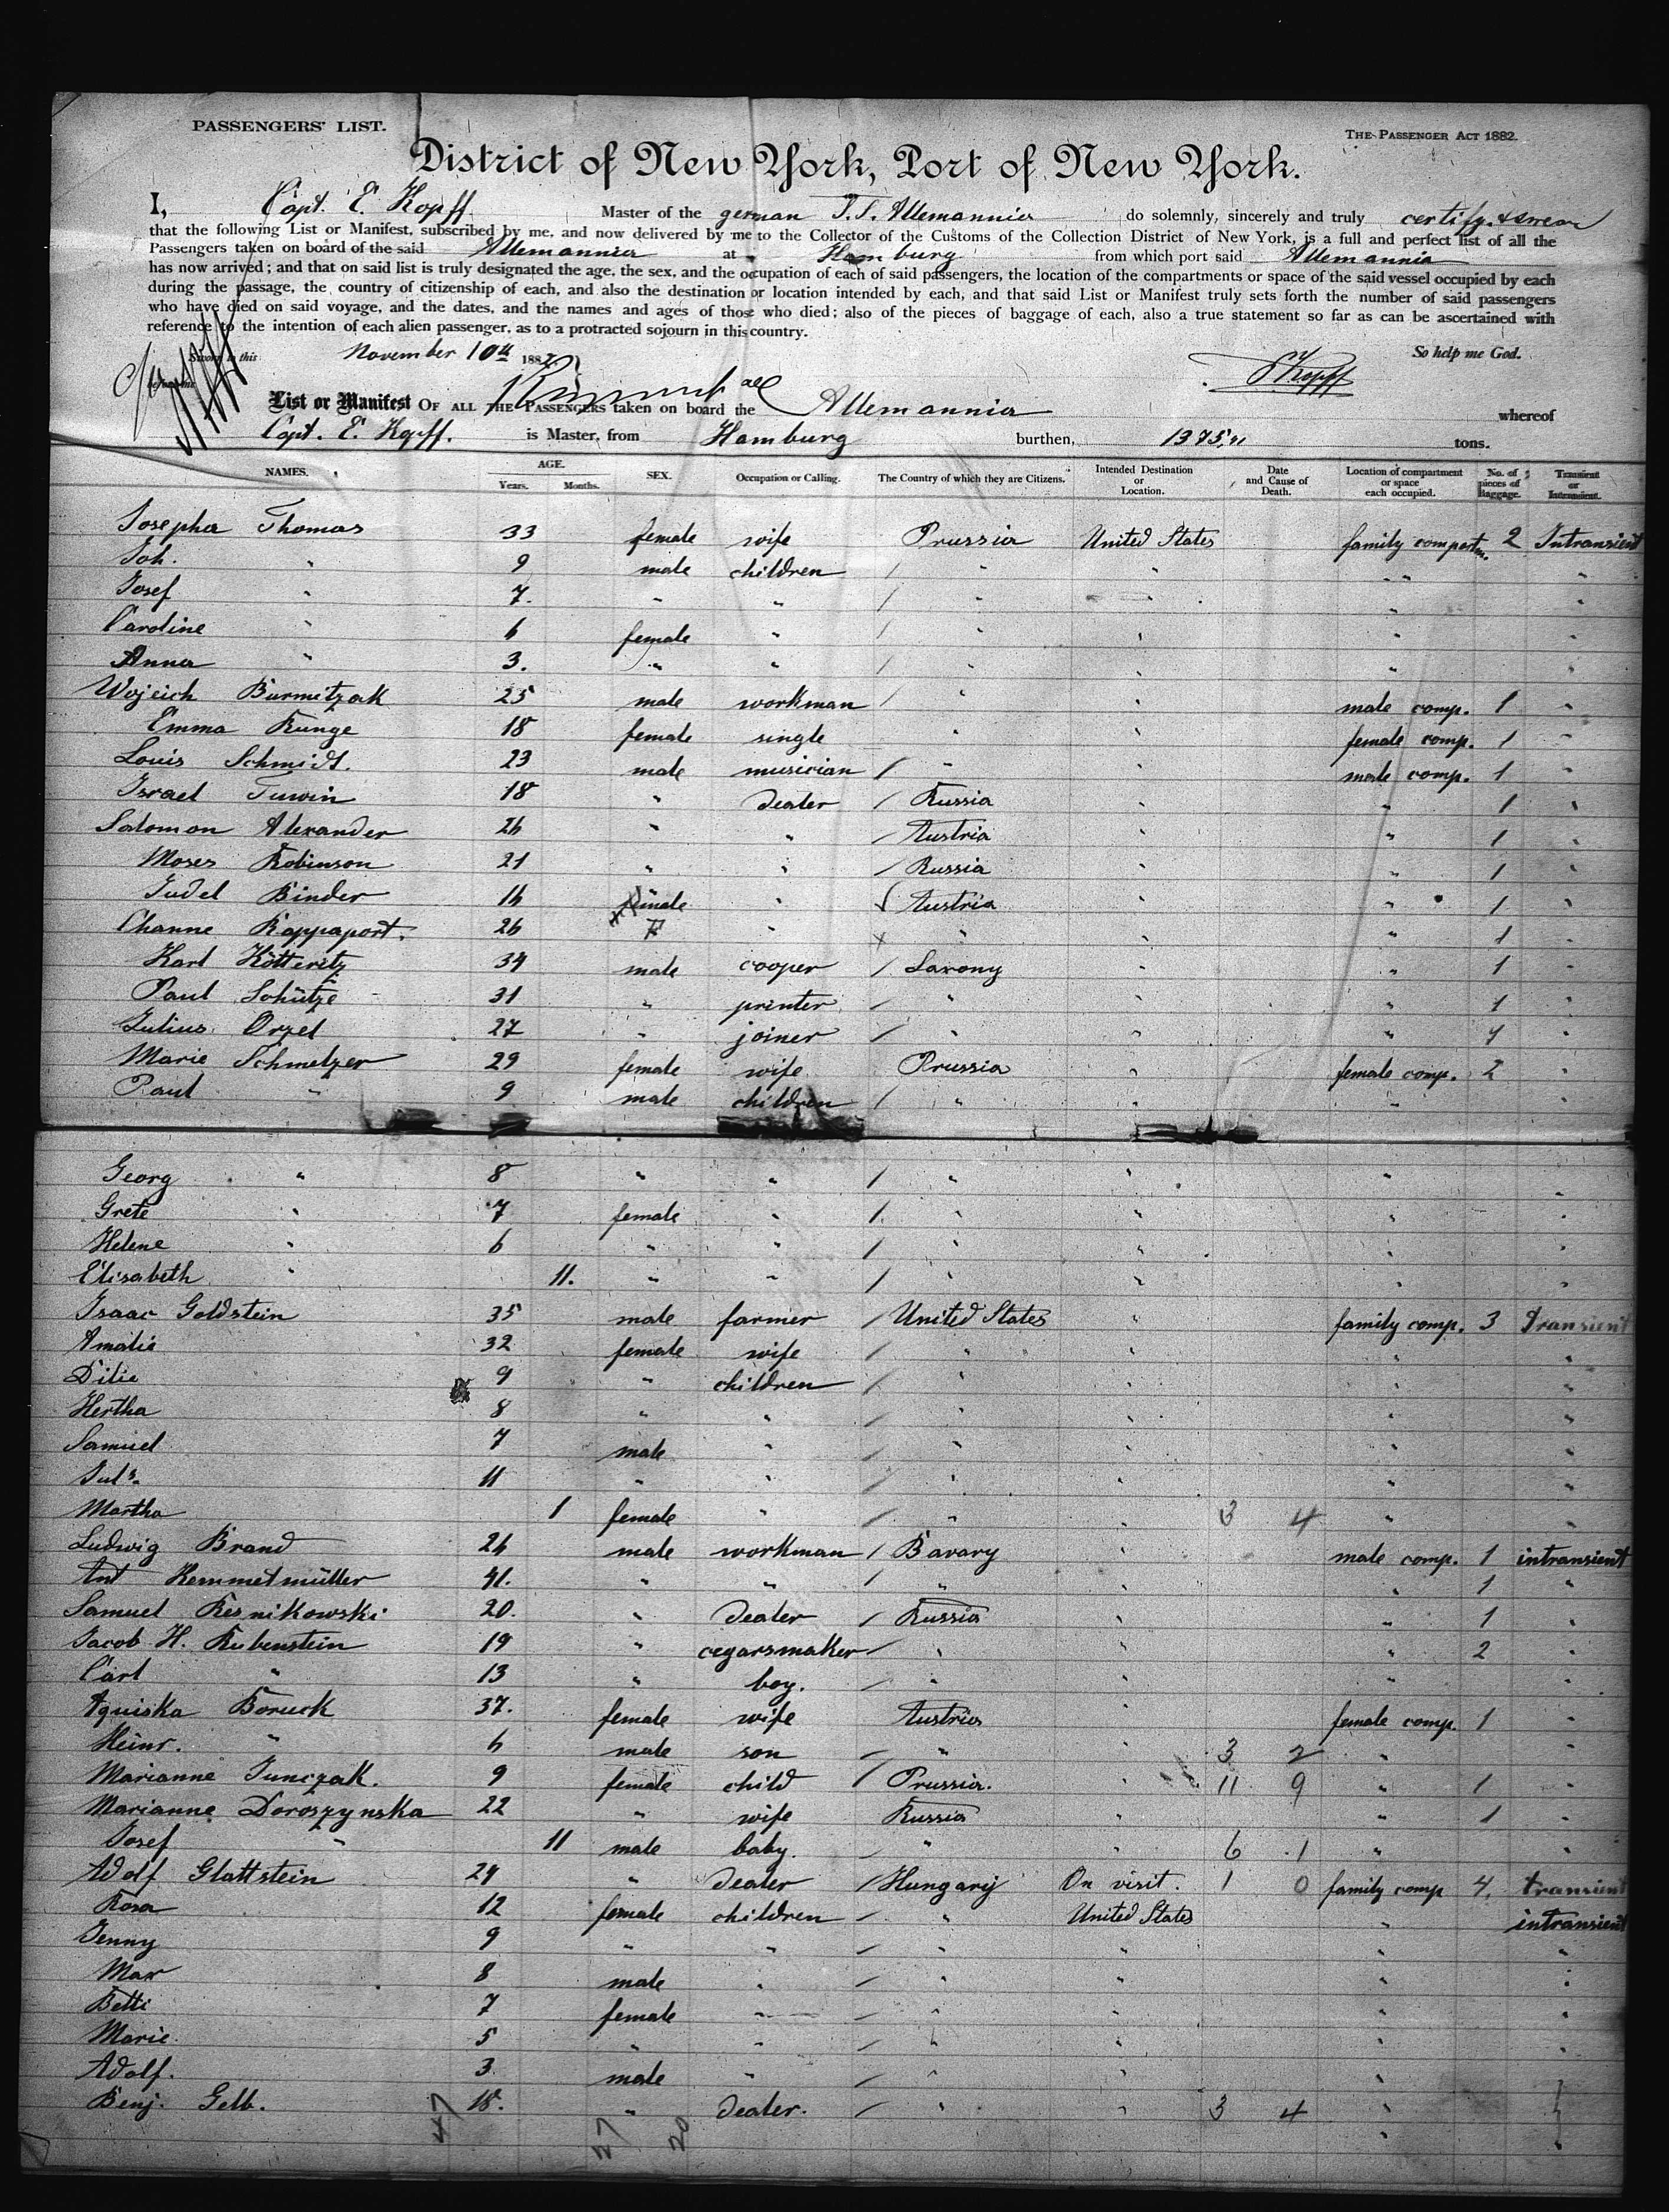 PASSENGERS' LIST.
THE PASSENGER ACT 1882.
District of New York, Port of New York.
I, Capt. E. Kopff Master of the german T.S. Allemannia do solemnly, sincerely and truly certify & swear
that the following List or Manifest, subscribed by me, and now delivered by me to the Collector of the Customs of the Collection District of New York, is a full and perfect list of all the
Passengers taken on board of the said Allemannia at Hamburg from which port said Allemannia
has now arrived; and that on said list is truly designated the age, the sex, and the occupation of each of said passengers, the location of the compartments or space of the said vessel occupied by each
during the passage, the country of citizenship of each, and also the destination or location intended by each, and that said List or Manifest truly sets forth the number of said passengers
who have died on said voyage, and the dates, and the names and ages of those who died; also of the pieces of baggage of each, also a true statement so far as can be ascertained with
reference to the intention of each alien passenger, as to a protracted sojourn in this country.
Sworn to this November 10th 188 So help me God.
before me EKopff
List or Manifest OF ALL THE PASSENGERS taken on board the Allemannia whereof
Capt. E. Kopff. is Master, from Hamburg burthen, 1375, tons.
NAMES. AGE. Years. Months. SEX. Occupation or Calling. The Country of which they are Citizens. Intended Destination or Location. Date and Cause of Death. Location of compartment or space each occupied. No. of pieces of Baggage. Transient or Intransient.
Josepha Thomas 33 female wife Prussia United States family compartm. 2 Intransient
Joh. " 9 male children / " " " " "
Josef " 7. " " / " " " "
Caroline " 6 female " / " " " "
Anna " 3. " " / " " " "
Wojeich Burmitzak 25 male workman / " " male comp. 1 "
Emma Runge 18 female single " " female comp. 1 "
Louis Schmidt. 23 male musician / " " male comp. 1 "
Israel Tuwin 18 " Dealer / Russia " " 1 "
Salomon Alexander 26 " " / Austria " " 1 "
Moses Robinson 21 " " / Russia " " 1 "
Judel Binder 16 " Austria " " 1 "
Channe Rappaport. 26 F " x " " " 1 "
Karl Kötteritz 34 male cooper / Saxony " " 1 "
Paul Schütze 31 " printer / " " " 1 "
Julius Orzel 27 " joiner / " " " "
Marie Schmelzer 29 female wife Prussia " female comp. 2 "
Paul " 9 male children / " " " "
Georg " 8 " " / " " " "
Grete " 7 female " / " " " "
Helene " 6 " " / " " " "
Elisabeth " 11. " " / " " " "
Isaac Goldstein 35 male farmer / United States " family comp. 3 Transient
Amalie 32 female wife / " " " "
Dilie 9 " children / " " " "
Hertha 8 " " / " " " "
Samuel 7 male " / " " " "
Juls. 11 " " / " " " "
Martha 1 female " / " " 3 4 " "
Ludwig Brand 26 male workman / Bavary " male comp. 1 intransient
Ant Kemmetmüller 41. " " / " " " 1 "
Samuel Resnikowski 20. " Dealer / Russia " " 1 "
Jacob H. Rubenstein 19 " cegarsmaker / " " " 2 "
Carl " 13 " boy. / " " " "
Aguiska Boruck 37. female wife Austria " female comp. 1 "
Heinr. " 6 male son / " " 3 2 " "
Marianne Junczak. 9 female child / Prussia. " 11 9 " 1 "
Marianne Doroszynska 22 " wife Russia " " 1 "
Josef " 11 male baby. " " 6 1 " "
Adolf Glattstein 24 " Dealer / Hungary On visit. 1 0 family comp 4. transient
Rosa 12 female children / " United States " intransient
Jenny 9 " " / " " " "
Max 8 male " / " " " "
Betti 7 female " / " " " "
Marie 5 " " / " " " "
Adolf. 3 male " / " " " "
Benj. Gelb. 18. " Dealer. / " " 3 4 "
47 27 20